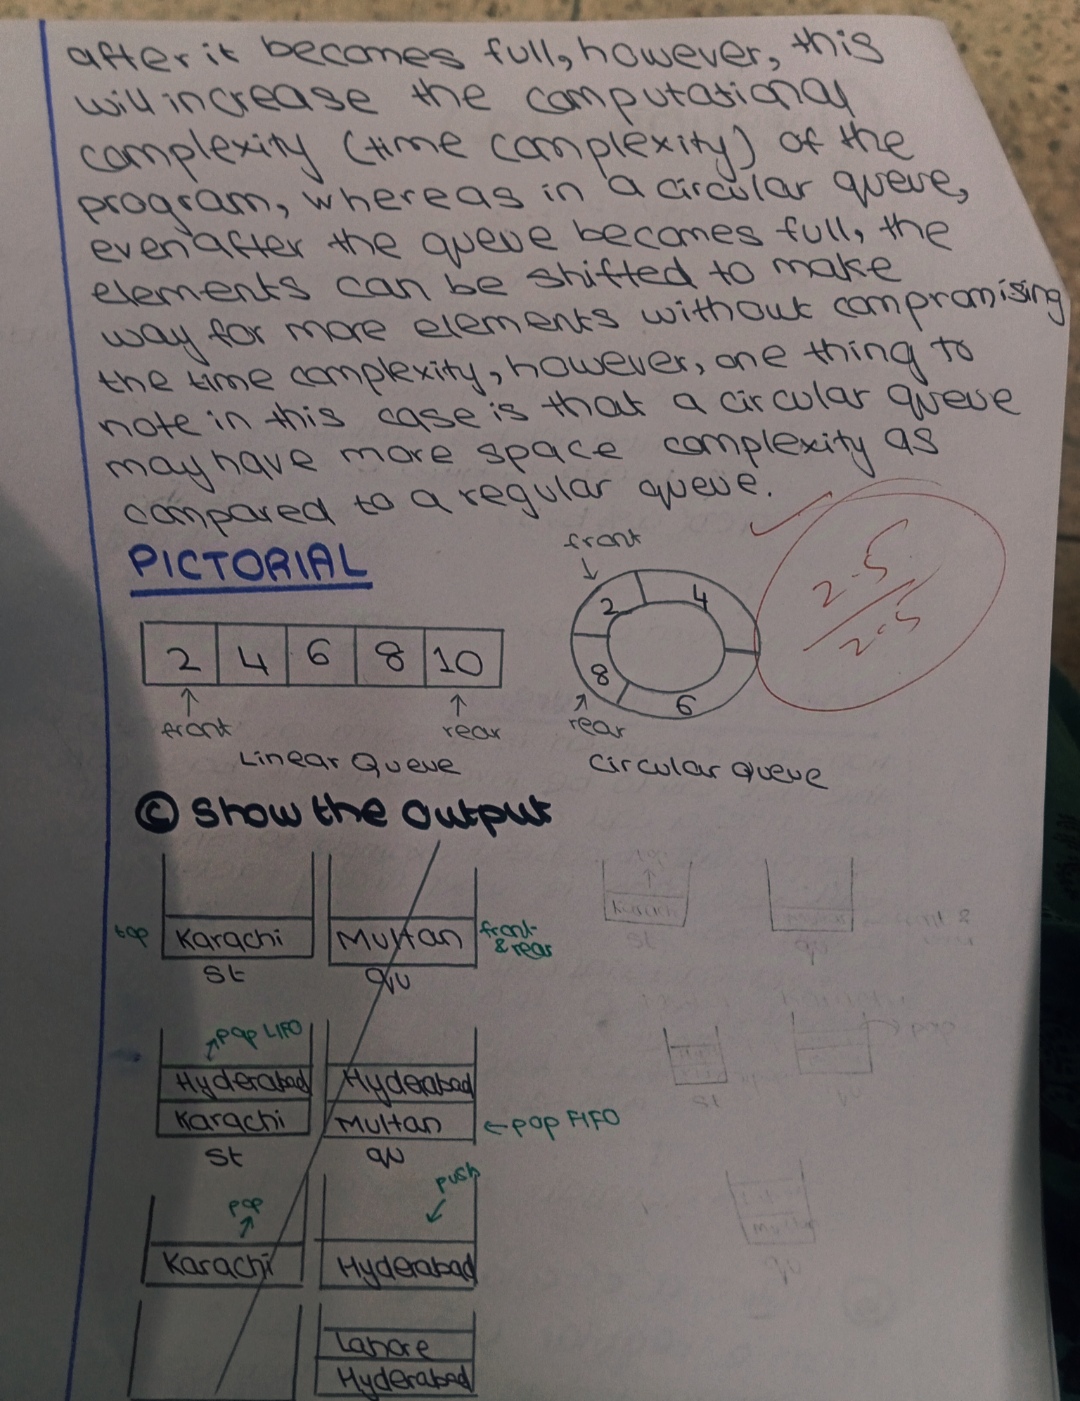 after it becomes full, however, this
will increase the computational
complexity (time complexity) of the
program, whereas in a circular queue,
even after the queue becomes full, the
elements can be shifted to make
way for more elements without compromising
the time complexity, however, one thing to
note in this case is that a circular queue
may have more space complexity as
compared to a regular queue.
PICTORIAL
2 4 6 8 10
front rear
Linear Queue
front
2 4
8 6
rear
Circular queue
2.5
2.5
(C) Show the output
top Karachi
st
Multan front & rear
qu
pop LIFO
Hyderabad Hyderabad
Karachi Multan ← pop FIFO
st qu
pop push
Karachi Hyderabad
Lahore
Hyderabad